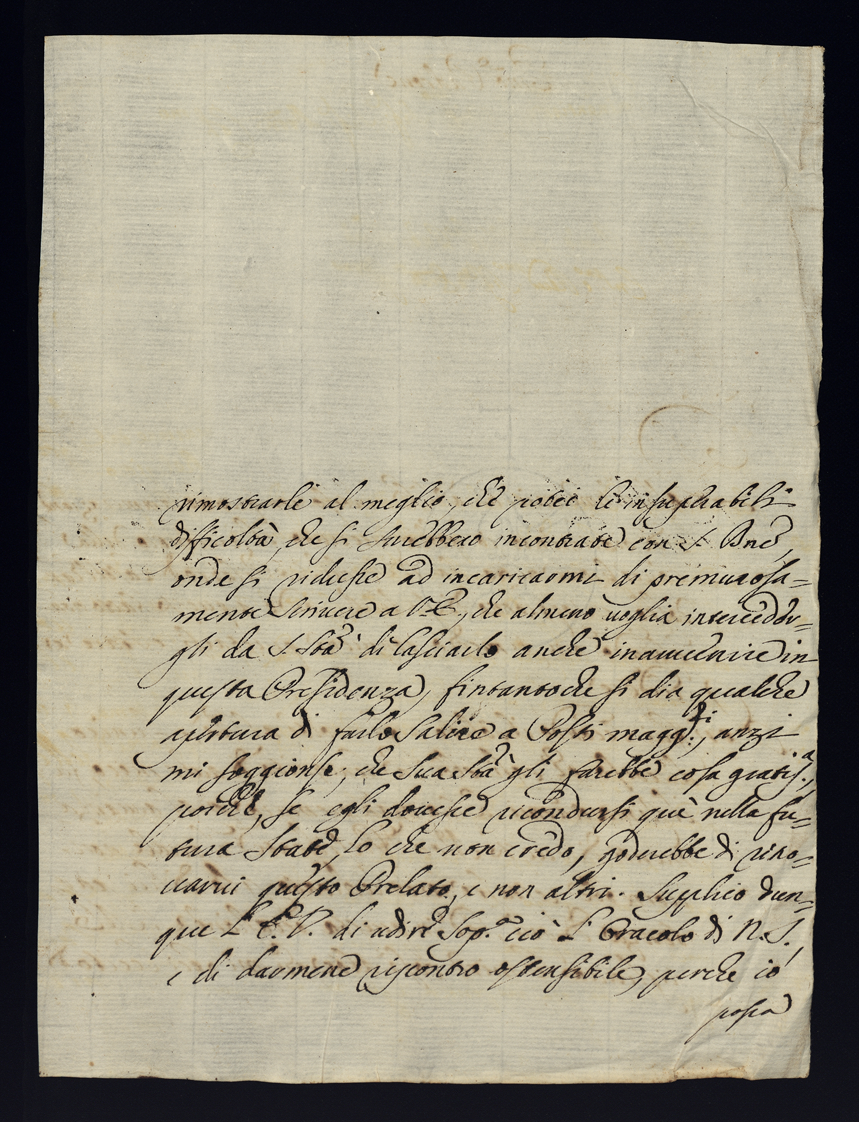 rimostrarle al meglio, che potei le insuperabili
difficoltà, che si sarebbero incontrate con S. Bne,
onde si ridusse ad incaricarmi di premurosa=
mente scrivere a V.E., che almeno voglia interceder=
gli da S. Stà di lasciarlo anche in avvenire in
questa Presidenza, fintantoche si dia qualche
apertura di farlo salire a Posti magg.ri, anzi
mi soggionse, che Sua Stà gli farebbe cosa gratis.a,
poiche, se egli dovesse ricondursi quì nella fu=
tura State, lo che non credo, goderebbe di rino=
varvi questo Prelato, e non altri. Supplico dun=
que L'E.V. di udire sop.a ciò L'Oracolo di N.S.,
e di darmene riscontro ostensibile, perche io
possa